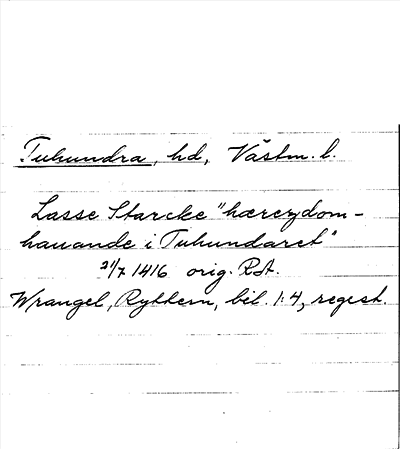 Tuhundra, hd, Västm. l.
Lasse Starcke "hærerzdom-
hauande i Tuhundaret"
21/7 1416 orig. RA.
Wrangel, Ryttern, bil. 1:4, regest.